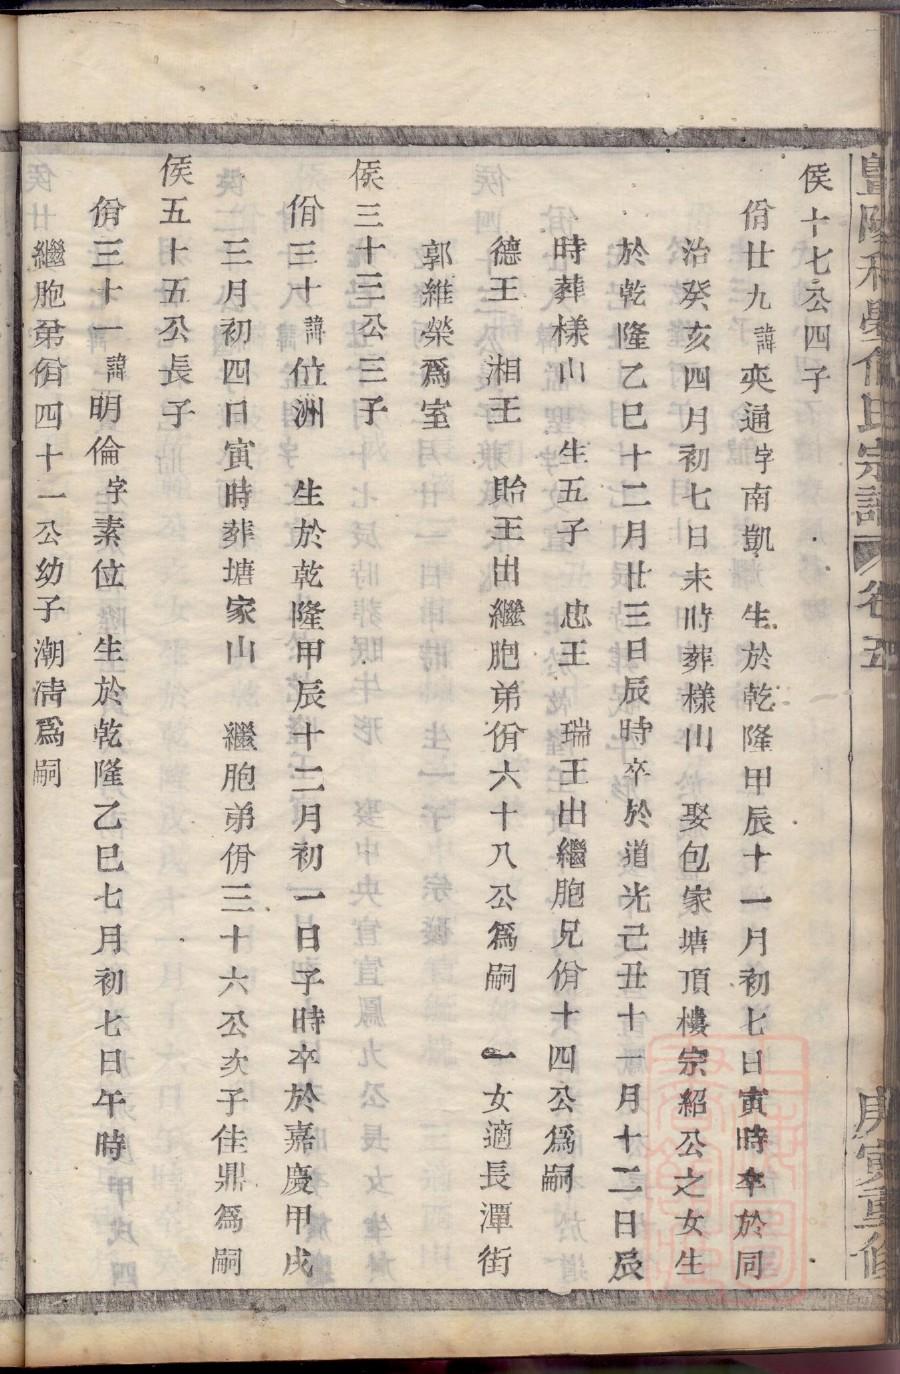 侯十七公四子
佾廿九諱奕通字南凱　生於乾隆甲辰十一月初七日寅時卒於同
治癸亥四月初七日未時葬樣山　娶包家塘頂樓宗紹公之女生
於乾隆乙巳十二月廿三日辰時卒於道光己丑十一月十二日辰
時葬樣山　生五子　忠王　瑞王出繼胞兄佾十四公為嗣
德王　湘王　貽王出繼胞弟佾六十八公為嗣　一女適長潭街
郭維榮為室
侯三十三公三子
佾三十諱位洲　生於乾隆甲辰十二月初一日子時卒於嘉慶甲戌
三月初四日寅時葬塘家山　繼胞弟佾三十六公次子佳鼎為嗣
侯五十五公長子
佾三十一諱明倫字素位　生於乾隆乙巳七月初七日午時
繼胞弟佾四十一公幼子潮清為嗣
氏宗譜　卷五　庚寅重修